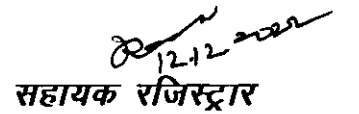 12.12.2022
सहायक रजिस्ट्रार